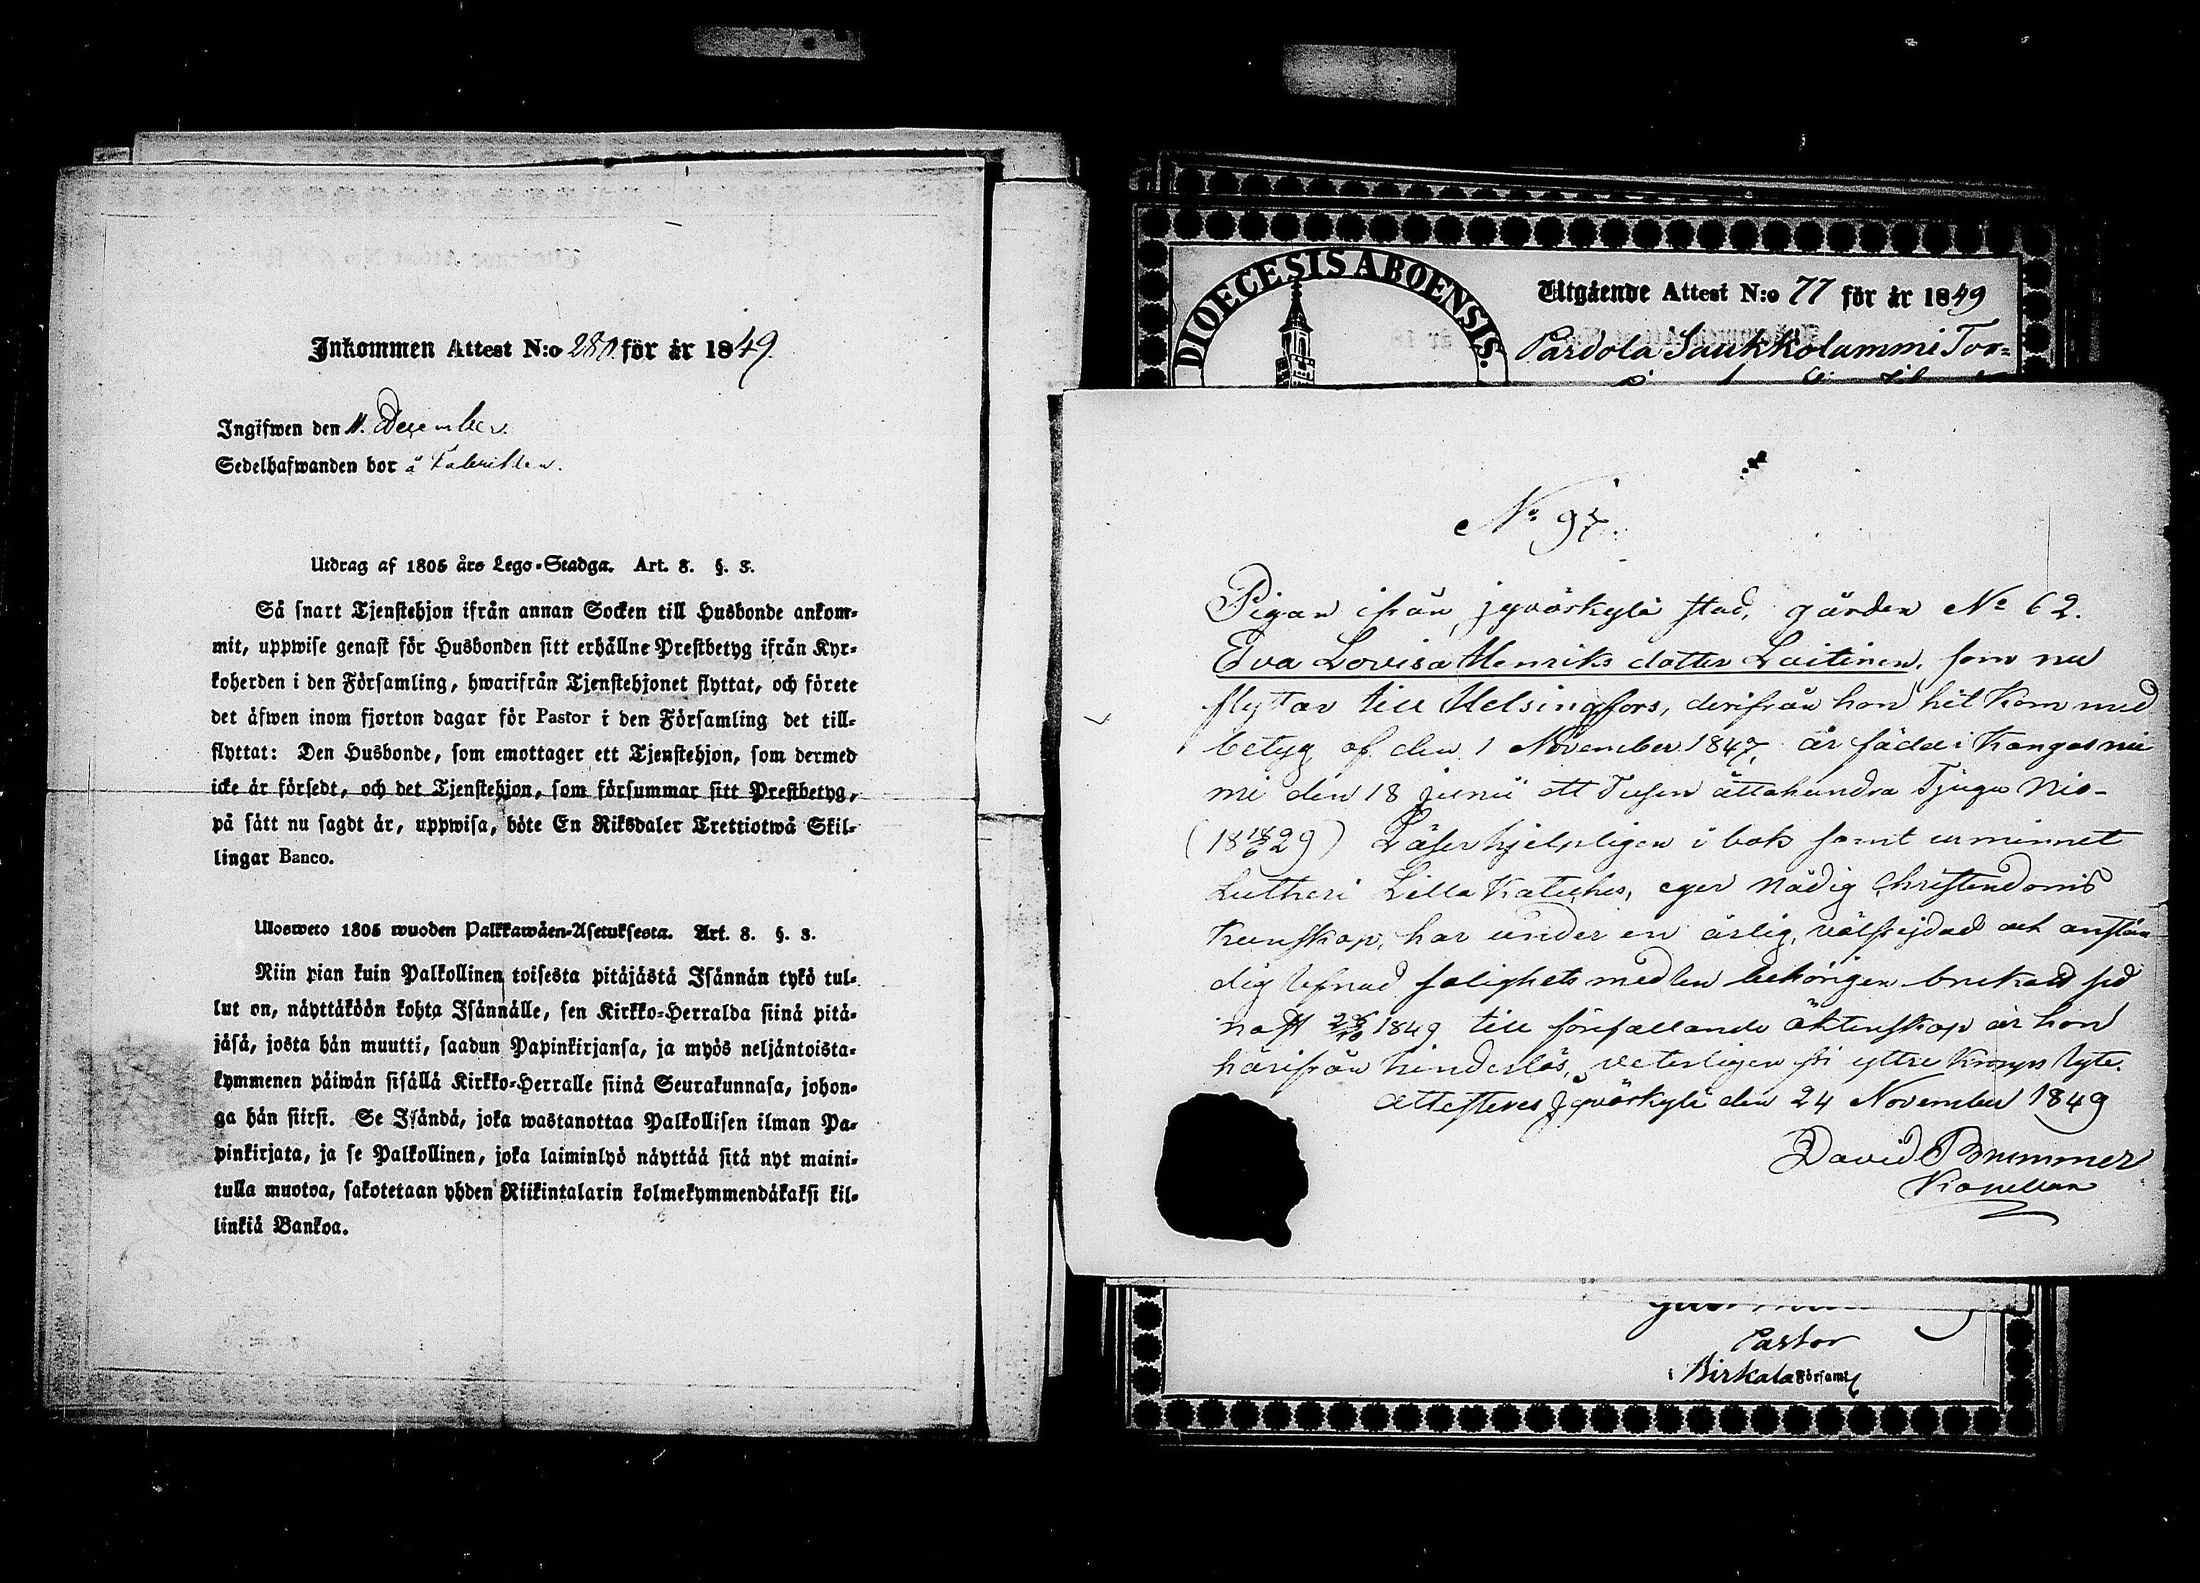 Inkommen Attest N:o 280 för år 1849.
Ingifwen den 11. December.
Sedelhafwanden bor å Fabriken.
Utdrag af 1805 års Lego-Stadga. Art. 8. §. 3.
Så snart Tjenstehjon ifrån annan Socken till Husbonde ankom-
mit, uppwise genast för Husbonden sitt erhållne Prestbetyg ifrån Kyr-
koherden i den Församling, hwarifrån Tjenstehjonet flyttat, och förete
det äfwen inom fjorton dagar för Pastor i den Församling det till-
flyttat: Den Husbonde, som emottager ett Tjenstehjon, som dermed
icke är försedt, och det Tjenstehjon, som försummar sitt Prestbetyg,
på sätt nu sagdt är, uppwisa, böte En Riksdaler Trettiotwå Skil-
lingar Banco.
Ulosweto 1805 wuoden Palkkawäen-Asetuksesta. Art. 8. §. 3.
Niin pian kuin Palkollinen toisesta pitäjästä Isännän tykö tul-
lut on, näyttäköön kohta Isännälle, sen Kirkko-Herralda siinä pitä-
jäsä, josta hän muutti, saadun Papinkirjansa, ja myös neljäntoista-
kymmenen päiwän sisällä Kirkko-Herralle siinä Seurakunnasa, johon-
ga hän siirsi. Se Isändä, joka wastanottaa Palkollisen ilman Pa-
pinkirjata, ja se Palkollinen, joka laiminlyö näyttää sitä nyt maini-
tulla muotoa, sakotetaan yhden Riikintalarin kolmekymmendäkaksi kil-
linkiä Bankoa.
DIOECESIS ABOENSIS.
Utgående Attest N:o 77 för år 1849
Pardola Saukkolammi Tor=
No 97.
Pigan ifrån jyväskylä stad, gården No 62.
Eva Lovisa Henriks dotter Laitinen, som nu
flyttar till Helsingfors, derifrån hon hit kom med
betyg af den 1 November 1847, är född i Kangasnie
mi den 18 junii ett Tusen åttahundra Tjugu Nio-
(18 18/6 29) Läser hjelpligen i bok samt ur minnet
Lutheri Lilla Kateches, eger nödig Christendoms
kunskap, har under en ärlig, välfrejdad och anstän
dig lefnad salighets medlen behörigen brukat sed
nast 1849 till förefallande äktenskap är hon
härifrån hinderslös, veterligen fri yttre kropps lyte.
Attesteres Jyväskylä den 24 November 1849
David Brummer
Kapellan
Pastor
i Birkala Församl